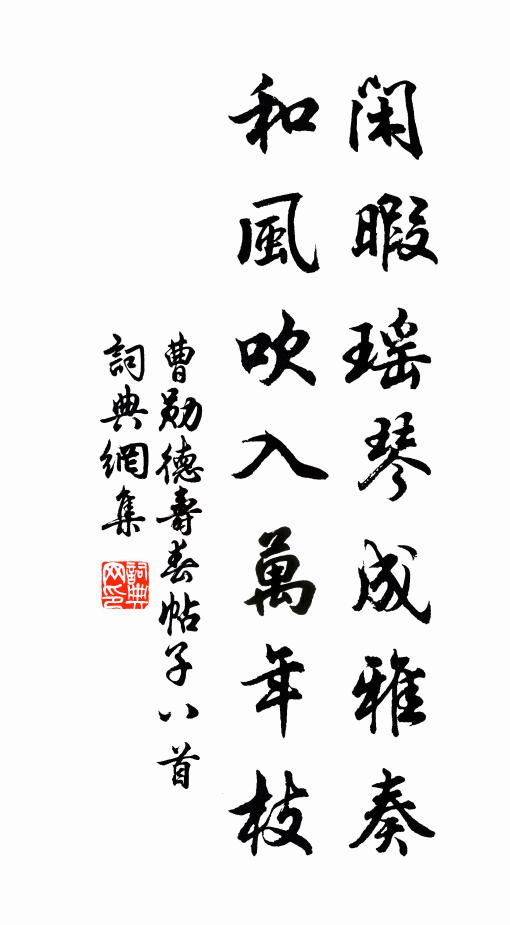 閑暇瑶琴成雅奏
和風吹入萬年枝
曹勛德壽春帖子八首
詞典網集
詞典网印